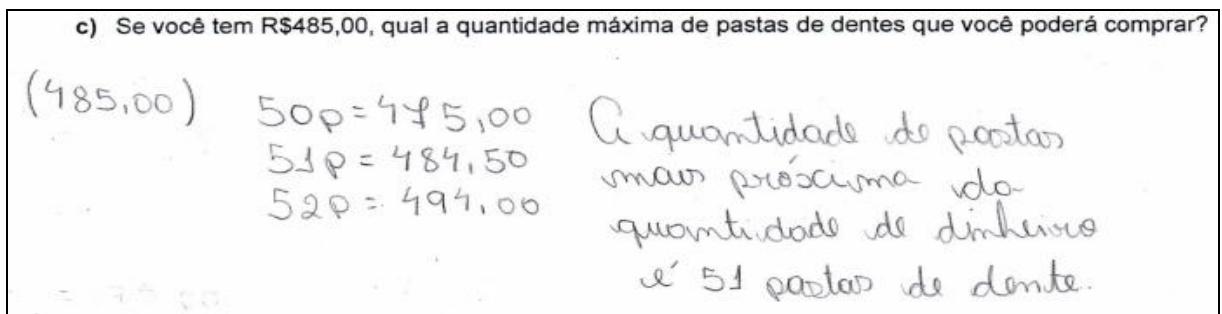 c) Se você tem R$485,00, qual a quantidade máxima de pastas de dentes que você poderá comprar?
(485,00)
50p = 475,00
51p = 484,50
52p = 494,00
A quantidade de pastas
mais próxima da
quantidade de dinheiro
é 51 pastas de dente.